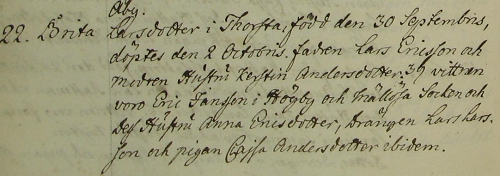 Åby.
22. Brita Larsdotter i Thorsta, född den 30 Septembris,
döptes den 2 Octobris. fadren Lars Ericsson och
modren Hustru Kerstin Andersdotter. 39 wittnen
voro Eric Jansson i Högby och Trällösa Socken och
Des Hustru Anna Ericsdotter, Drängen Lars Lars-
son och pigan Cajsa Andersdotter ibidem.